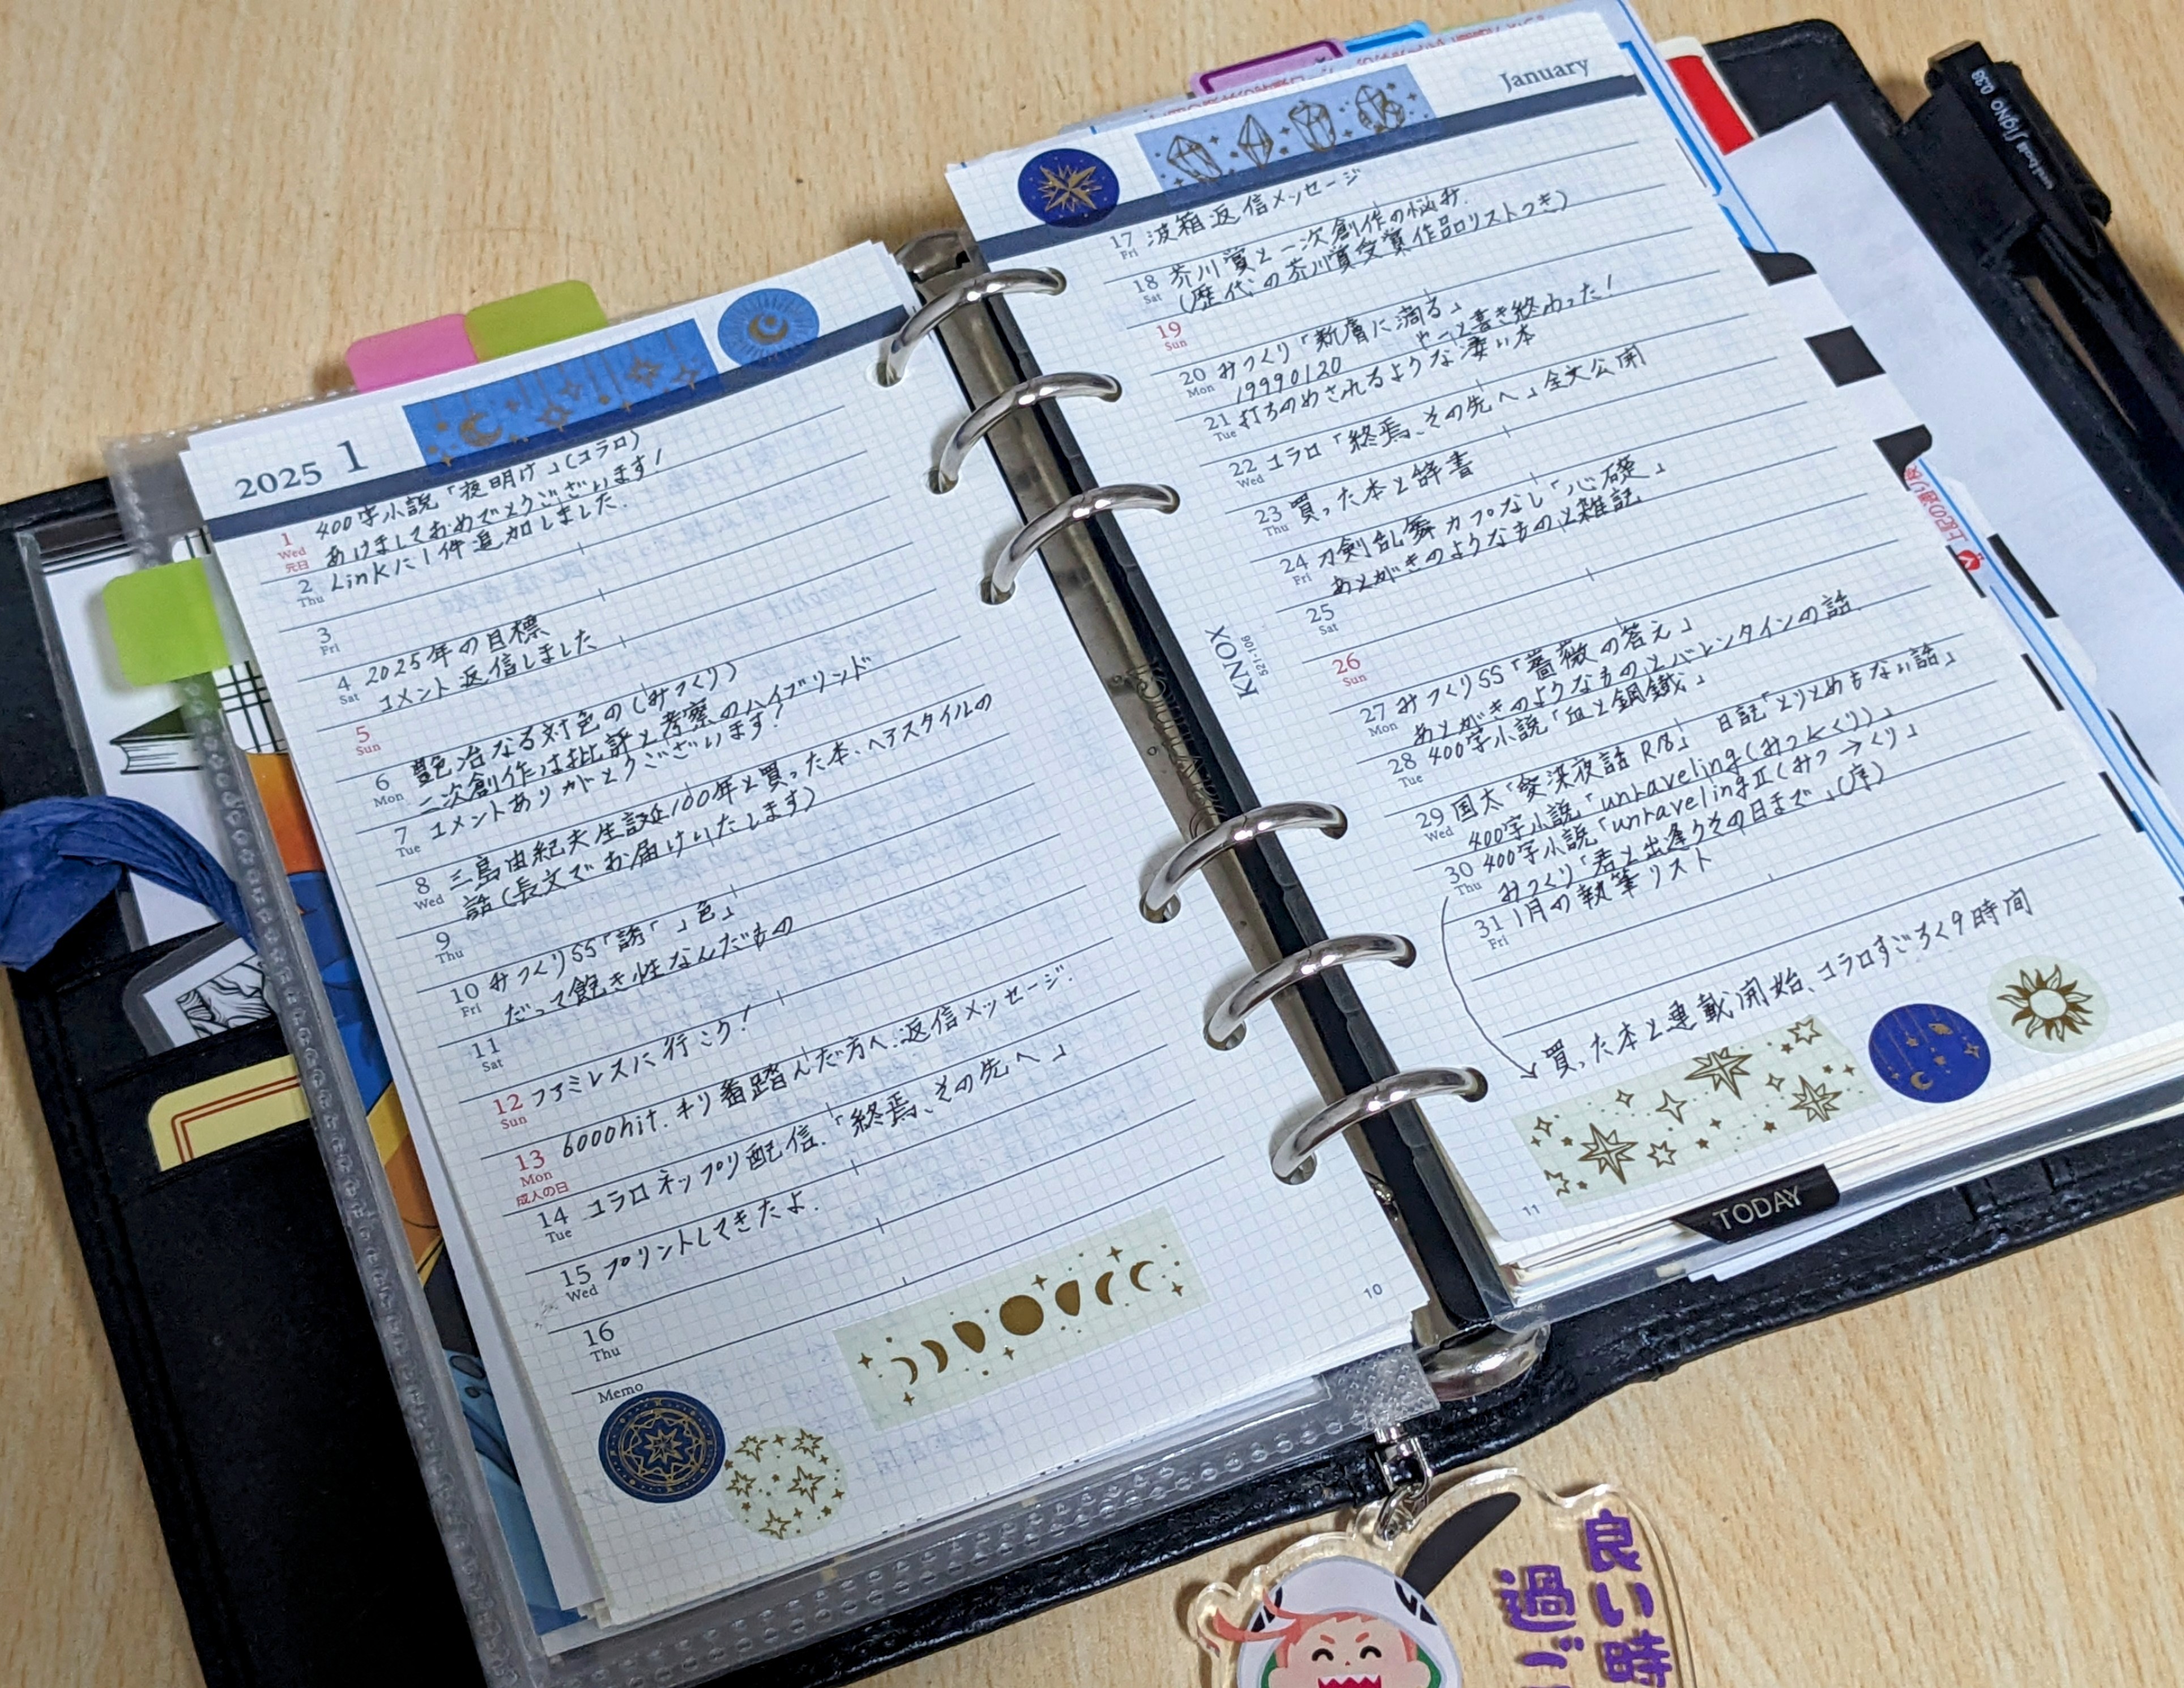 2025 1
1 Wed 元日
400字小説「夜明け」(コラロ)
あけましておめでとうございます!
2 Thu
Linkに1件追加しました.
3 Fri
4 Sat
2025年の目標
コメント返信しました
5 Sun
6 Mon
艶冶なる対色の(みつくり)
二次創作は批評と考察のハイブリッド
7 Tue
コメントありがとうございます!
8 Wed
三島由紀夫生誕100年と買った本、ヘアスタイルの
話(長文でお届けいたします)
9 Thu
10 Fri
みつくりSS「誘「」色」
だって飽き性なんだもの
11 Sat
12 Sun
ファミレスに行こう!
13 Mon 成人の日
6000hit.キリ番踏んだ方へ.返信メッセージ.
14 Tue
コラロネップリ配信.「終焉、その先へ」
15 Wed
プリントしてきたよ.
16 Thu
Memo
10
January
17 Fri
波箱返信メッセージ
18 Sat
芥川賞と一次創作の悩み.
(歴代の芥川賞受賞作品リストつき)
19 Sun
20 Mon
みつくり「新膚に滴る」
19990120 やーっと書き終わった!
21 Tue
打ちのめされるような凄い本
22 Wed
コラロ「終焉、その先へ」全文公開
23 Thu
買った本と辞書
24 Fri
刀剣乱舞カプなし「心礎」
あとがきのようなものと雑記
25 Sat
26 Sun
27 Mon
みつくりSS「薔薇の答え」
あとがきのようなものとバレンタインの話.
28 Tue
400字小説「血と鋼鐵」
29 Wed
国太「 深夜話 R18」 日記「とりとめもない話」
400字小説「unraveling(みつ←くり)」
30 Thu
400字小説「unravelingⅡ(みつ→くり」
みつくり「君と出逢うその日まで」(序)
31 Fri
1月の執筆リスト
買った本と連載開始、コラロすごろく9時間
11
KNOX
521-106
TODAY
uni-ball Signo 0.38
上記の通り
良い時
過ご